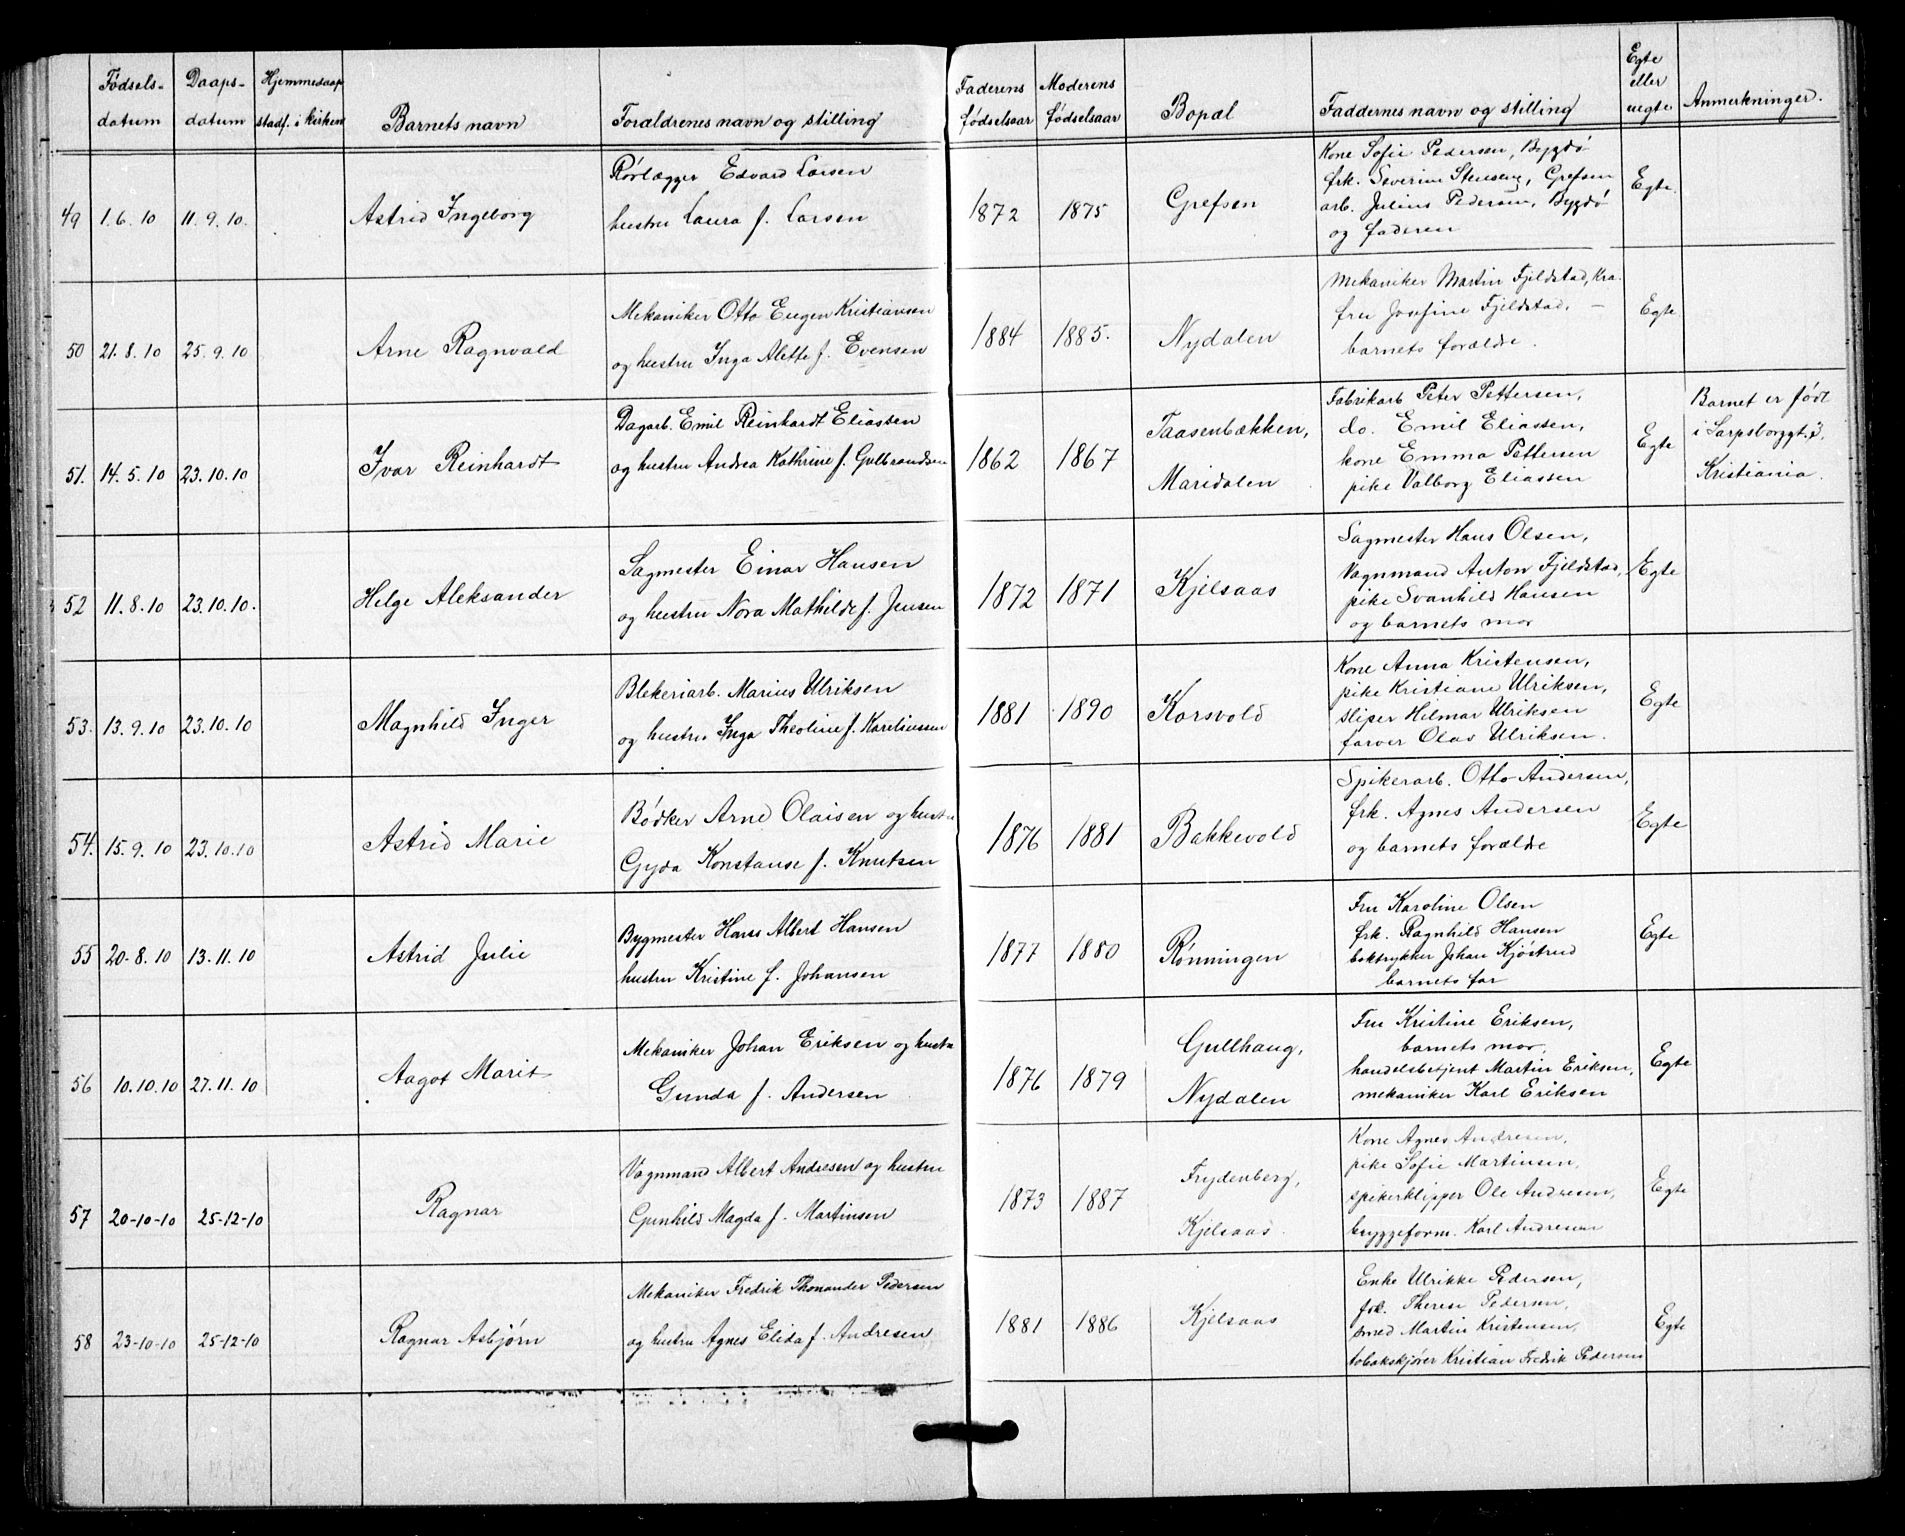 Fødsels-
datum
Daaps-
datum
Hjemmedaap
stadf. i kirken
Barnets navn
Forældrenes navn og stilling
Faderens
fødselsaar
Moderens
fødselsaar
Bopæl
Faddernes navn og stilling
Egte
eller
uegte
Anmerkninger.
49 1.6.10 11.9.10. Astrid Ingeborg
Rørlægger Edvard Larsen
hustru Laura f. Larsen
1872 1875 Grefsen
Kone Sofie Pedersen, Bygdø
frk. Severine Stenseng, Grefsen
arb. Julius Pedersen, Bygdø
og faderen
Egte.
50 21.8.10 25.9.10 Arne Ragnvald
Mekaniker Otto Eugen Kristiansen
og hustru Inga Alette f. Evensen
1884 1885. Nydalen
Mekaniker Martin Fjeldstad, Kra.
fru Josefine Fjeldstad. —
barnets forældre.
Egte
51. 14.5.10 23.10.10 Ivar Reinhardt
Dagarb. Emil Reinhardt Eliassen
og hustru Andrea Kathrine f. Gulbrandsen
1862 1867
Taasenbækken,
Maridalen
Fabrikarb Peter Pettersen,
do. Emil Eliassen,
kone Emma Pettersen
pike Valborg Eliassen
Egte
Barnet er født
i Sarpsborggt. 3,
Kristiania.
52 11.8.10 23.10.10. Helge Aleksander
Sagmester Einar Hansen
og hustru Nora Mathilde f. Jensen
1872 1871 Kjelsaas
Sagmester Hans Olsen,
Vognmand Anton Fjeldstad,
pike Svanhild Hansen
og barnets mor
Egte
53. 13.9.10 23.10.10 Magnhild Inger
Blekeriarb. Marius Ulriksen
og hustru Inga Theoline f. Kareliussen
1881 1890 Korsvold
Kone Anna Kristensen,
pike Kristiane Ulriksen,
sliper Hilmar Ulriksen
farver Olav Ulriksen.
Egte
54. 15.9.10 23.10.10 Astrid Marie
Bødker Arne Olaisen og hustru
Gyda Konstanse f. Knutsen
1876 1881 Bakkevold
Spikerarb. Otto Andersen,
frk. Agnes Andersen
og barnets forældre
Egte
55 20-8.10 13.11.10 Astrid Julie
Bygmester Hans Albert Hansen
hustru Kristine f. Johansen
1877 1880 Rønningen
Fru Karoline Olsen
frk. Ragnhild Hansen
boktrykker Johan Kjøstrud
barnets far
Egte
56 10.10.10 27.11.10 Aagot Marit
Mekaniker Johan Eriksen og hustru
Gunda f. Andersen
1876 1879
Gullhaug,
Nydalen
Fru Kristine Eriksen,
barnets mor,
handelsbetjent Martin Eriksen,
mekaniker Karl Eriksen
Egte
57 20-10-10 25-12-10 Ragnar
Vognmand Albert Andresen og hustru
Gunhild Magda f. Martinsen
1873 1887
Frydenberg,
Kjelsaas.
Kone Agnes Andresen,
pike Sofie Martinsen,
spikerklipper Ole Andresen,
bryggeform. Karl Andresen
Egte
58 23-10-10 25-12-10 Ragnar Asbjørn
Mekaniker Fredrik Thonander Pedersen
og hustru Agnes Elida f. Andresen
1881 1886 Kjelsaas
Enke Ulrikke Pedersen,
frk. Therese Pedersen,
smed Martin Kristensen,
tobakskjører Kristian Fredrik Pedersen
Egte